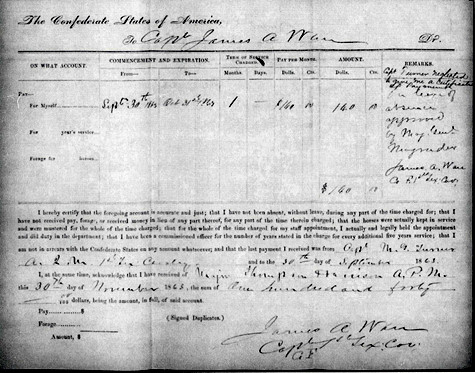 The Confederate States of America,
To Capt James A Ware Dr.
ON WHAT ACCOUNT. COMMENCEMENT AND EXPIRATION. TERM OF SERVICE CHARGED. PAY PER MONTH. AMOUNT. REMARKS.
From— To— Months. Days. Dolls. Cts. Dolls. Cts.
Pay—
For Myself Septr 30th 1863 Oct 31st 1863 1 — $140 00 140 00
For years' service
Forage for horses
$ 140 00
Capt Turner neglected
to give me a certificate
of Payment
Leave of
absence
approved
by Maj Genl
Magruder
James A. Ware
Co F 1st Tex Cav
I hereby certify that the foregoing account is accurate and just; that I have not been absent, without leave, during any part of the time charged for; that I
have not received pay, forage, or received money in lieu of any part thereof, for any part of the time therein charged; that the horses were actually kept in service
and were mustered for the whole of the time charged; that for the whole of the time charged for my staff appointment, I actually and legally held the appointment
and did duty in the department; that I have been a commissioned officer for the number of years stated in the charge for every additional five years service; that I
am not in arrears with the Confederate States on any amount whatsoever; and that the last payment I received was from Capt M. G. Turner
A. Q. M. 1st Tex Cavalry and to the 30th day of September 1863.
I, at the same time, acknowledge that I have received of Major Thompson Harrison A. P. M.
this 30th day of November 1863, the sum of One hundred and forty
00/100 dollars, being the amount, in full, of said account.
Pay $
Forage
Amount, $
(Signed Duplicates.)
James A Ware
Capt 1st Tex. Cav.
Co F